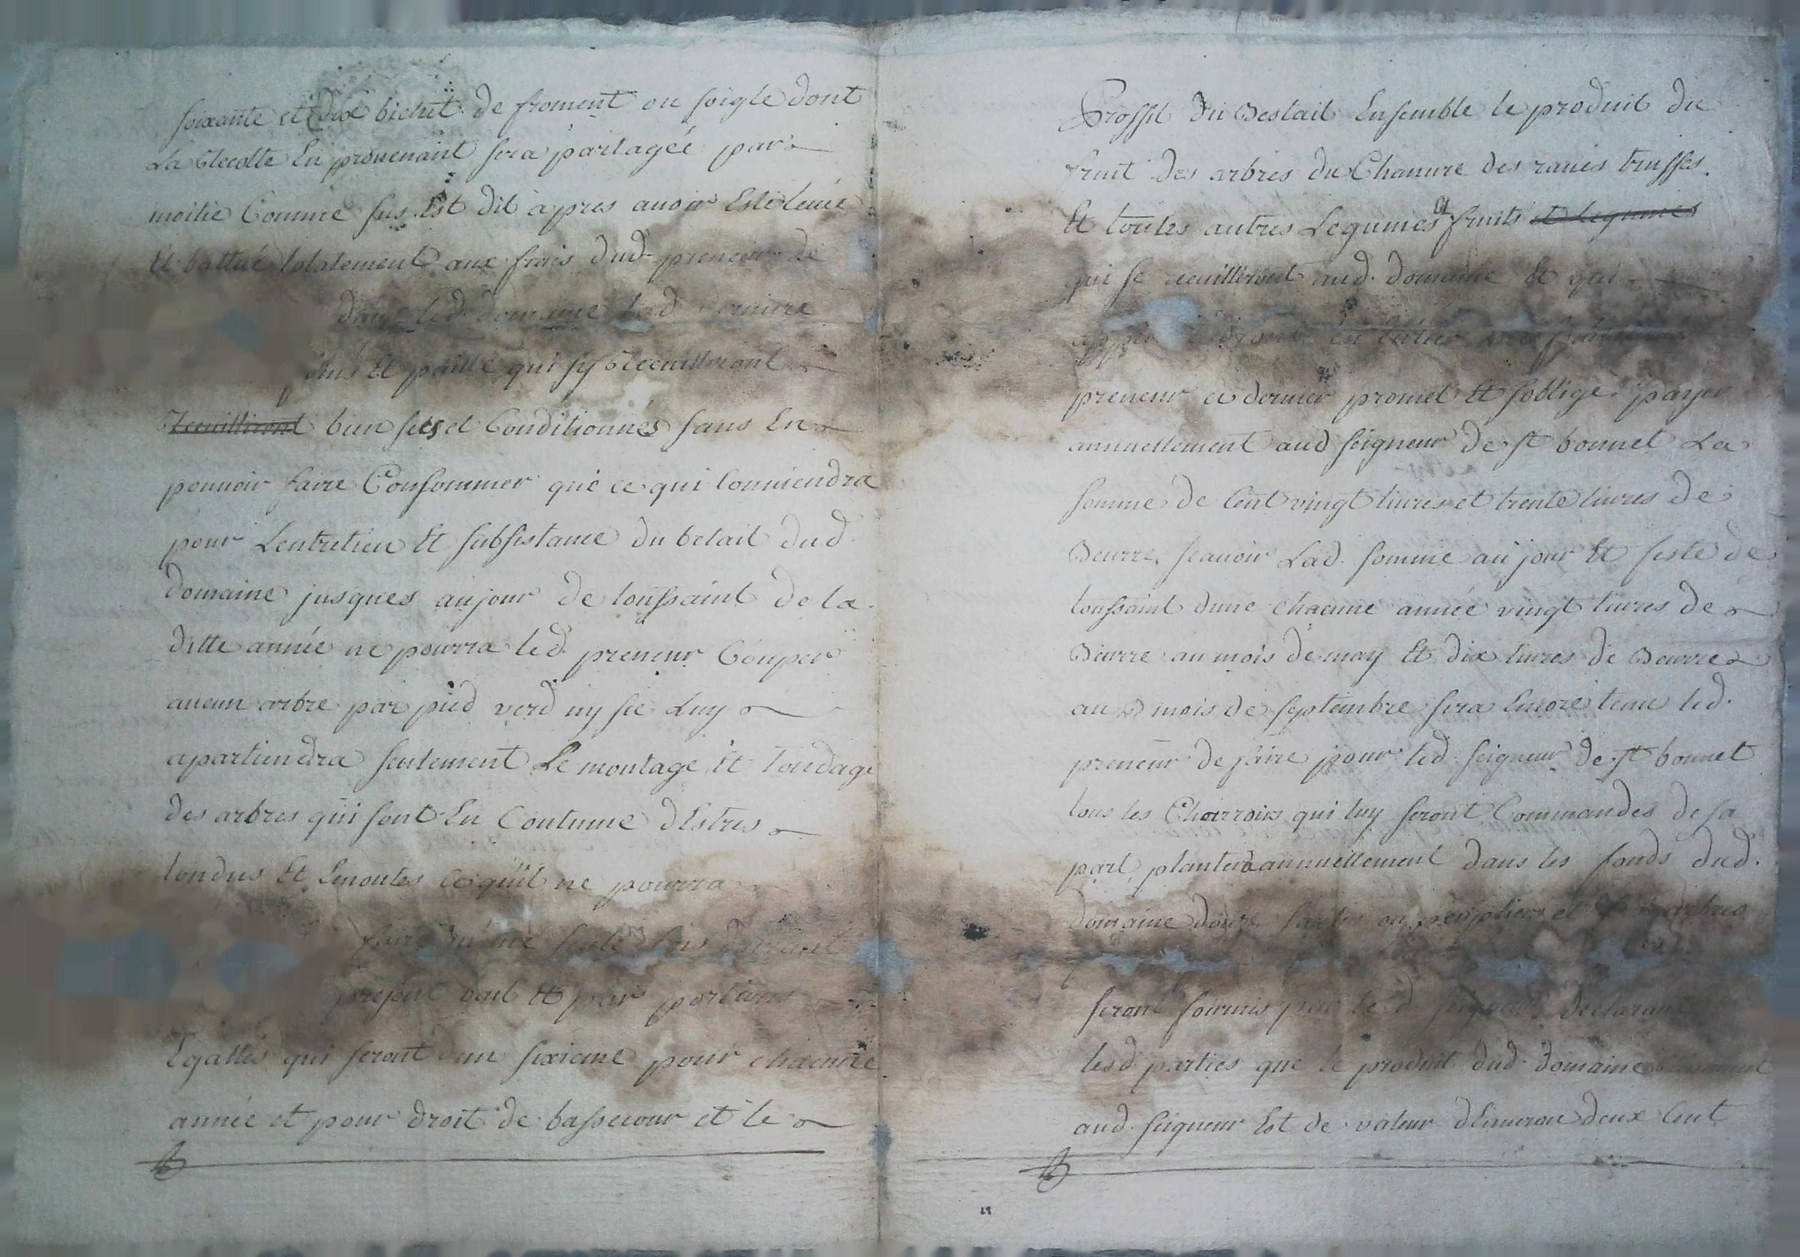 soixante et dix bichet de froment ou soigle dont
La Recolte En provenaint sera partagée par
moitié Comme sus Est dit apres auoir Esté leuée
Et battue totalement aux frais dud. preneur de
dans led. domaine lad. derniere
foins Et paille qui sy Recuilliront
Recuilliront bien secs et Conditionnés sans En
pouuoir faire Consommer que ce qui Conuiendra
pour Lentretien Et subsistance du betail dud.
domaine jusques au jour de toussaint de la
ditte année ne pourra led. preneur Couper
aucun arbre par pied verd ny sec Luy
apartiendra seulement Le montage Et Tondage
des arbres qui sont En Coutume dEstres
tondus Et Emontés Ce quil ne pourra
faire même seule fois durant
present bail Et par portions
Egalles qui seront dun sixieme pour chacune
année et pour droit de bassecour et le
Proffit du Bestail Ensemble le produit du
fruit des arbres du Chanvre des raues truffes
Et toutes autres Legumes et fruits et legumes
qui se recuilliront aud. domaine Et qui
en entier
preneur ce dernier promet Et soblige payer
annuellement aud seigneur de St bonnet La
somme de Cent vingt liures et trente liures de
Beurre, scauoir Lad. somme au jour Et feste de
toussaint dune chacune année vingt liures de
Beurre au mois de may Et dix liures de Beurre
au mois de septembre sera Encore tenu led.
preneur de faire pour led. seigneur de St bonnet
tous les Charroirs qui luy seront Commandés de sa
part plantera annuellement dans les fonds dud.
domaine douze saules ou peupliers et arbres
seront fournis par led. seigneur Declarant
lesd. parties que le produit dud. domaine
aud. seigneur Est de valeur dEnuiron deux Cent